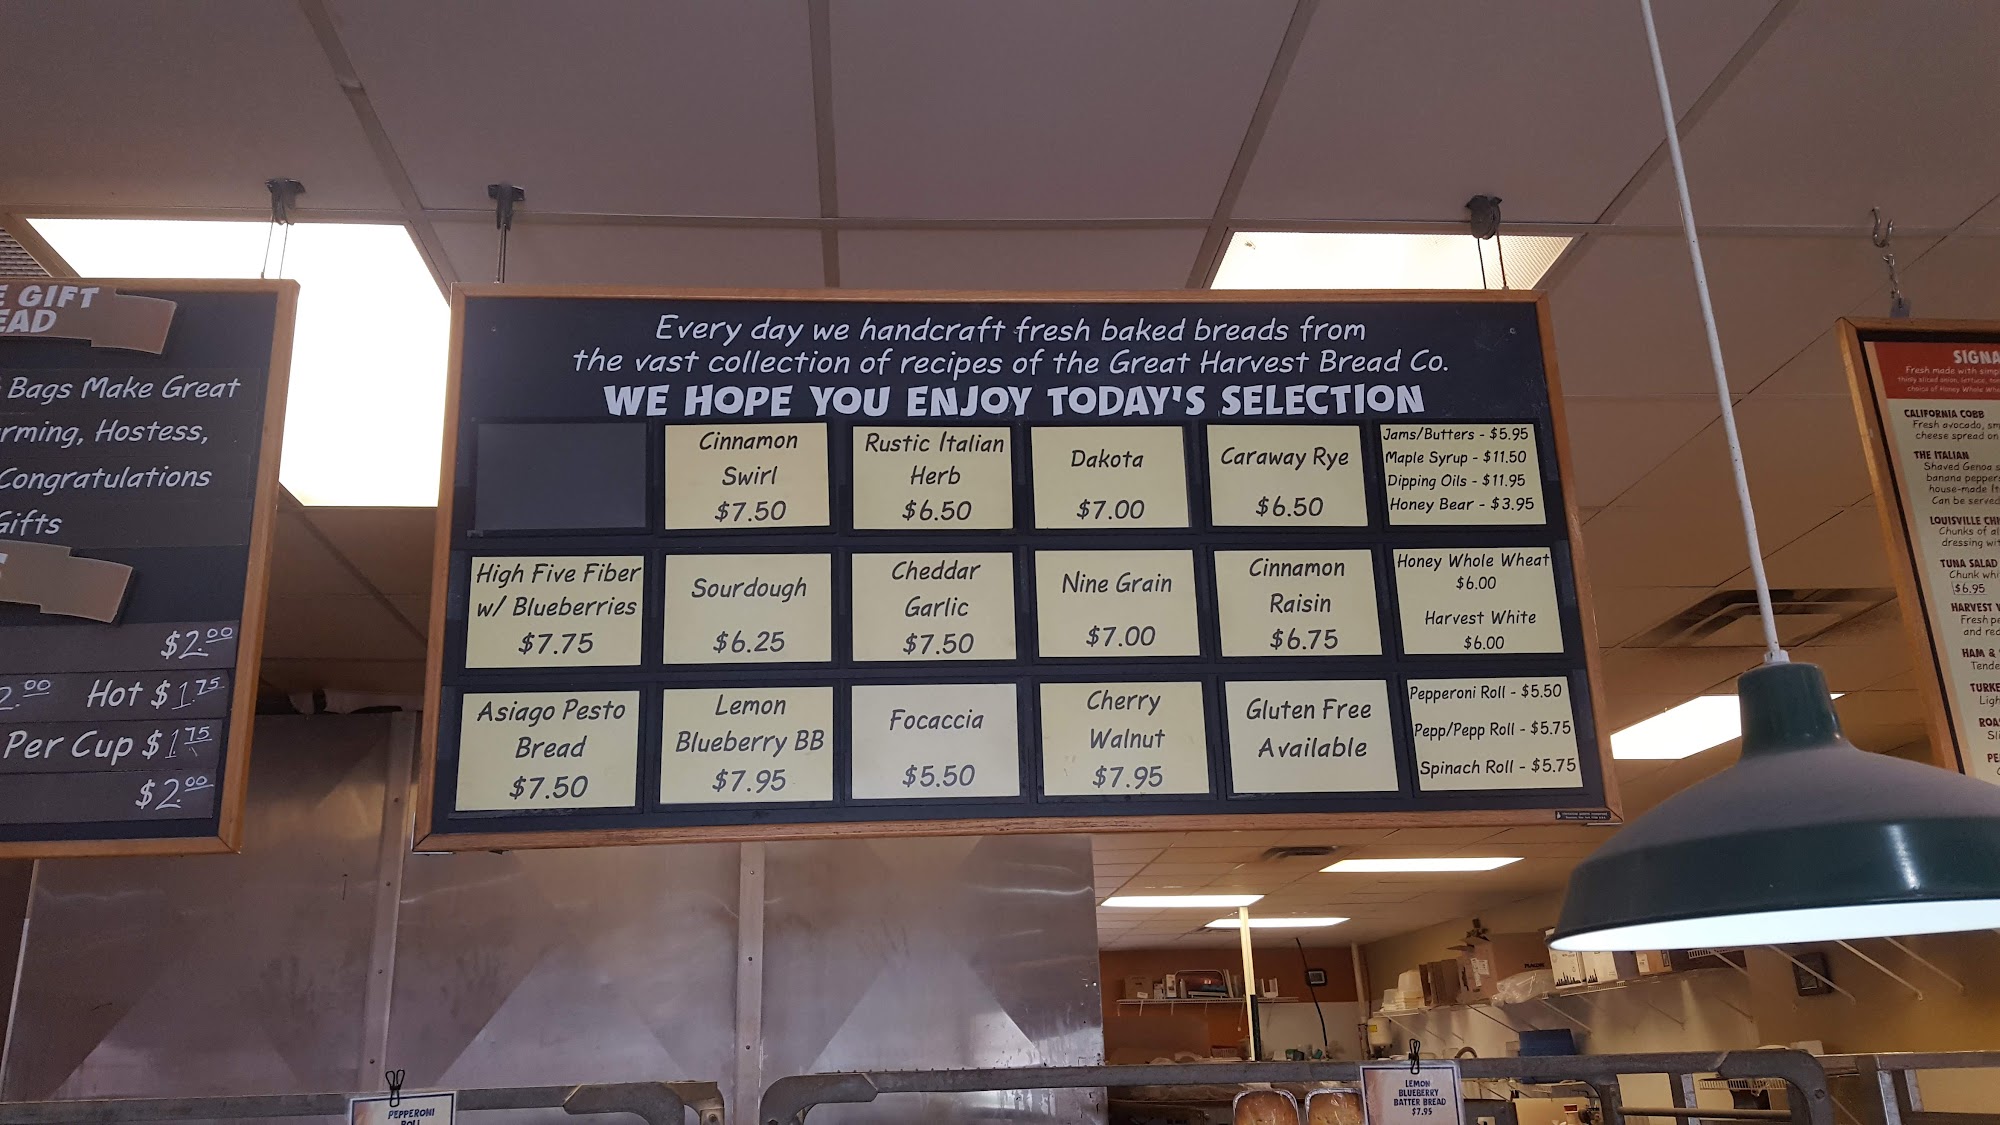 GIFT
Bags Make Great
Hostess,
Congratulations
Gifts
$2.00
Hot $1.75
Per Cup $1.75
$2.00
Every day we handcraft fresh baked breads from
the vast collection of recipes of the Great Harvest Bread Co.
WE HOPE YOU ENJOY TODAY'S SELECTION
Cinnamon
Swirl
$7.50
Rustic Italian
Herb
$6.50
Dakota
$7.00
Caraway Rye
$6.50
Jams/Butters - $5.95
Maple Syrup - $11.50
Dipping Oils - $11.95
Honey Bear - $3.95
High Five Fiber
w/ Blueberries
$7.75
Sourdough
$6.25
Cheddar
Garlic
$7.50
Nine Grain
$7.00
Cinnamon
Raisin
$6.75
Honey Whole Wheat
$6.00
Harvest White
$6.00
Asiago Pesto
Bread
$7.50
Lemon
Blueberry BB
$7.95
Focaccia
$5.50
Cherry
Walnut
$7.95
Gluten Free
Available
Pepperoni Roll - $5.50
Pepp/Pepp Roll - $5.75
Spinach Roll - $5.75
Fresh made with
CALIFORNIA COBB
Fresh avocado,
cheese spread on
THE ITALIAN
Shaved Genoa
banana peppers
house-made
Can be served
LOUISVILLE
Chunks of
dressing
TUNA SALAD
Chunk
$6.95
HARVEST
and
HAM &
PEPPERONI
ROLL
LEMON
BLUEBERRY
BATTER BREAD
$7.95